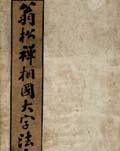 翁松禪相國大字法